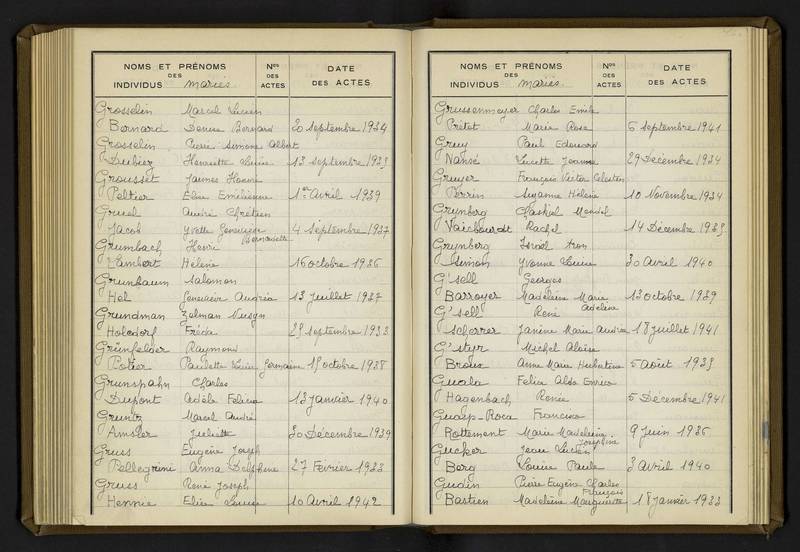 NOMS ET PRÉNOMS DES INDIVIDUS mariés
Nos DES ACTES
DATE DES ACTES
Grosselin Marcel Lucien
Bernard Denise Bernard 20 septembre 1934
Grosselin Pierre Simone Albert
Dubiez Henriette Louise 12 septembre 1933
Grousset James Honoré
Peltier Elise Emélienne 1er Avril 1939
Gruel André Chrétien
Jacob Yvette Geneviève Bernadette 4 septembre 1937
Grumbach Henri
Lambert Hélène 16 octobre 1936
Grunbaum Salomon
Hel Geneviève Andréa 13 juillet 1937
Grundman Zelman
Holodorf Fréda 29 septembre 1933
Grünfelder Raymond
Potier Paulette Louise Germaine 19 octobre 1938
Grunspahn Charles
Dupont Adèle Felicia 13 janvier 1940
Gruntz Marcel André
Amsler Juliette 30 Décembre 1939
Gruss Eugène Joseph
Pellegrini Anna Delphine 27 Février 1933
Gruss René Joseph
Hennie Elise Louise 10 Avril 1942
NOMS ET PRÉNOMS DES INDIVIDUS mariés
Nos DES ACTES
DATE DES ACTES
Grussenmeyer Charles Emile
Prétot Marie Rose 6 septembre 1941
Gruy Paul Edouard
Nansé Lucette Jeanne 29 Décembre 1934
Gruyer François Victor Célestin
Perrin Suzanne Hélène 10 Novembre 1934
Grynberg Chaskiel Mendel
Rachel 14 Décembre 1933
Grynberg Israël Aron
Simon Yvonne Louise 30 Avril 1940
G'sell Georges
Barroyer Madeleine Marie Adeline 13 octobre 1939
G'sell René
Scherrer Janine Marie Andrée 18 juillet 1941
G'styr Michel Aloise
Broux Anne Marie Hubertine 5 Août 1933
Guala Felice Aldo Enrico
Hagenbach Renée 5 Décembre 1941
Guasp-Roca Francisco
Rottement Marie Madeleine Joséphine 9 juin 1936
Gucker Jean Lucien
Berg Louise Paule 3 Avril 1940
Gudin Pierre Eugène Charles François
Bastien Madeleine Marguerite 18 janvier 1933